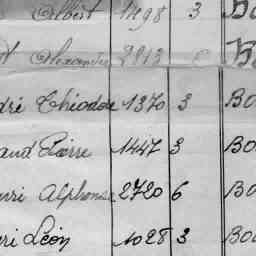 Albert 1498 3 Bo
Alexandre 2913 B
dré Théodore 1370 3 Bo
aud Pierre 1447 3 Bo
nri Alphonse 2720 6 Bo
ri Léon 1028 3 Bo